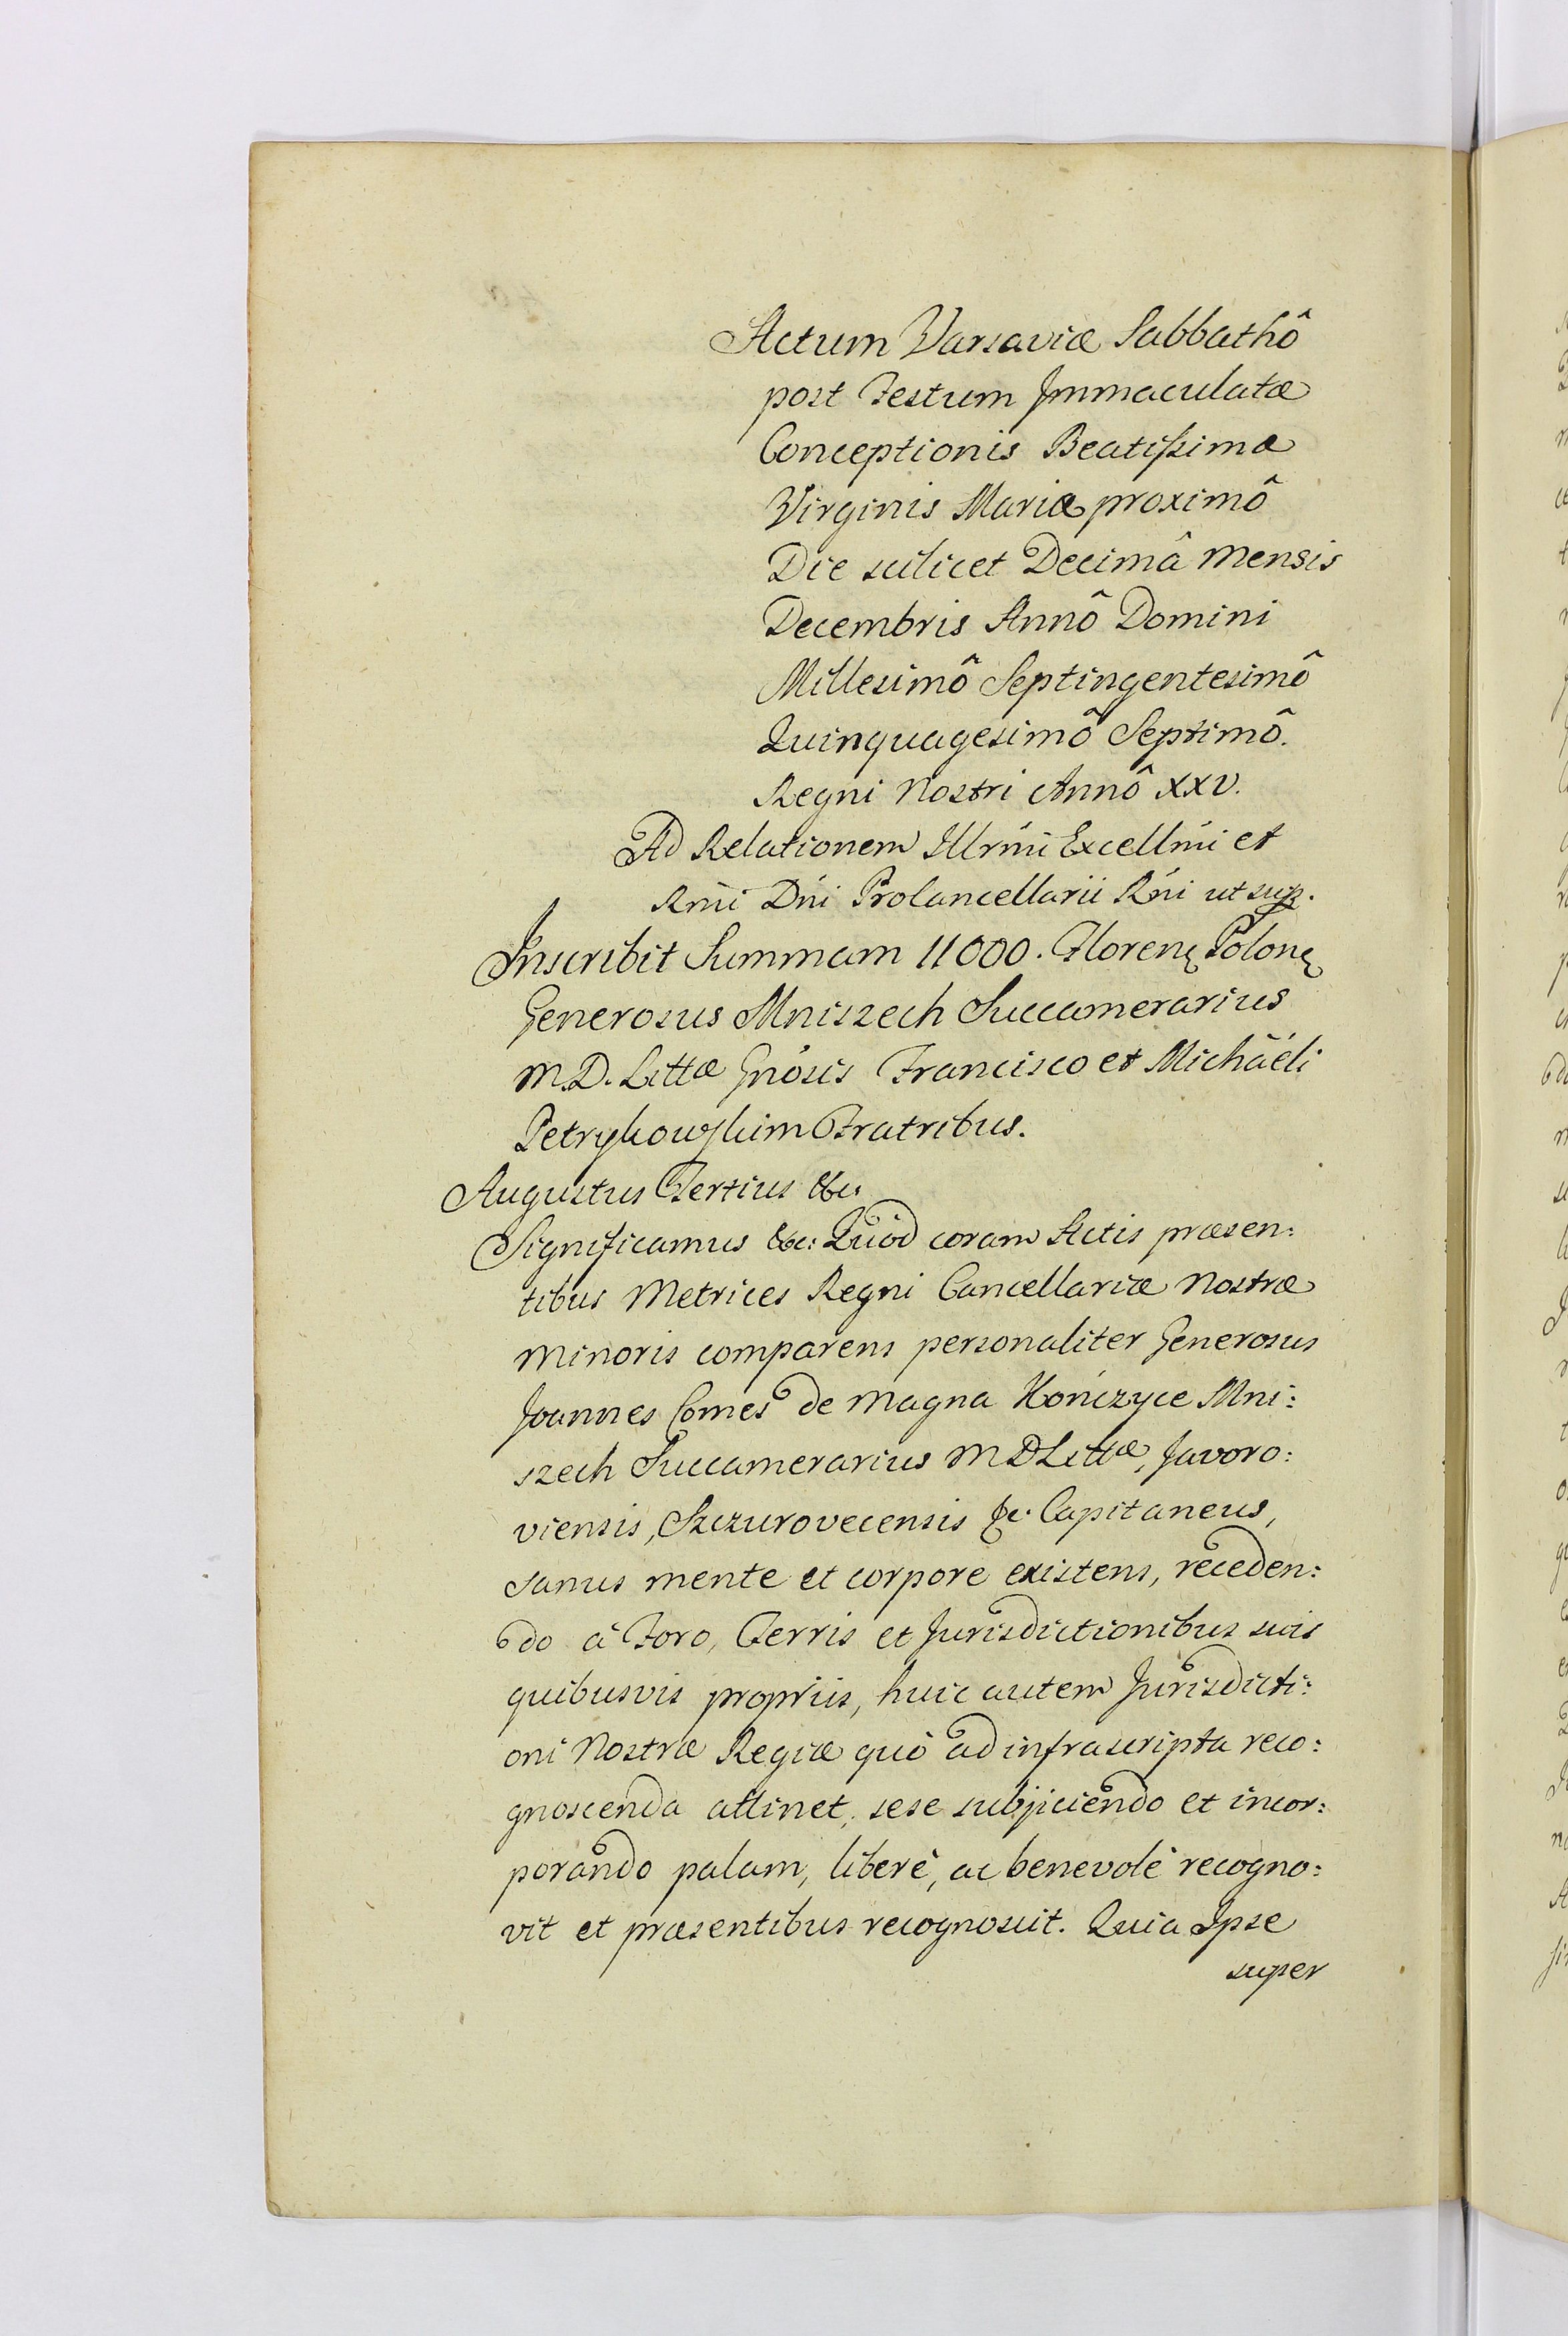 Actum Varsaviæ Sabbathô
post Festum Immaculatæ
Conceptionis Beatißimæ
Virginis Mariæ proximô
Die scilicet Decimâ Mensis
Decembris Annô Domini
Millesimô Septingentesimô
Quinquagesimô Septimô.
Regni Nostri Annô XXV.
Ad Relationem Illrmi Excellmi et
Rmi Dni Procancellarii Rni ut sup.
Inscribit Summam 11000. Floren Polon
Generosus Mniszech Succamerarius
M.D. Littæ Gnosis Francisco et Michaëli
Petrykowskim Fratribus.
Augustus Tertius &c.
Significamus &c: Quod coram Actis præsen:
tibus Metrices Regni Cancellariæ Nostræ
Minoris comparens personaliter Generosus
Joannes Comes de Magna Kończyce Mni:
szech Succamerarius M D Littæ, Javoro:
viensis, Szczurovecensis &c. Capitaneus,
sanus mente et corpore existens, receden:
do à Foro, Terris et Jurisdictionibus suis
quibusvis propriis, huic autem Jurisdicti:
oni Nostræ Regiæ quò ad infrascripta reco:
gnoscenda attinet, sese subjiciendo et incor:
porando palam, liberè, ac benevolè recogno:
vit et præsentibus recognoscit. Quia Ipse
super